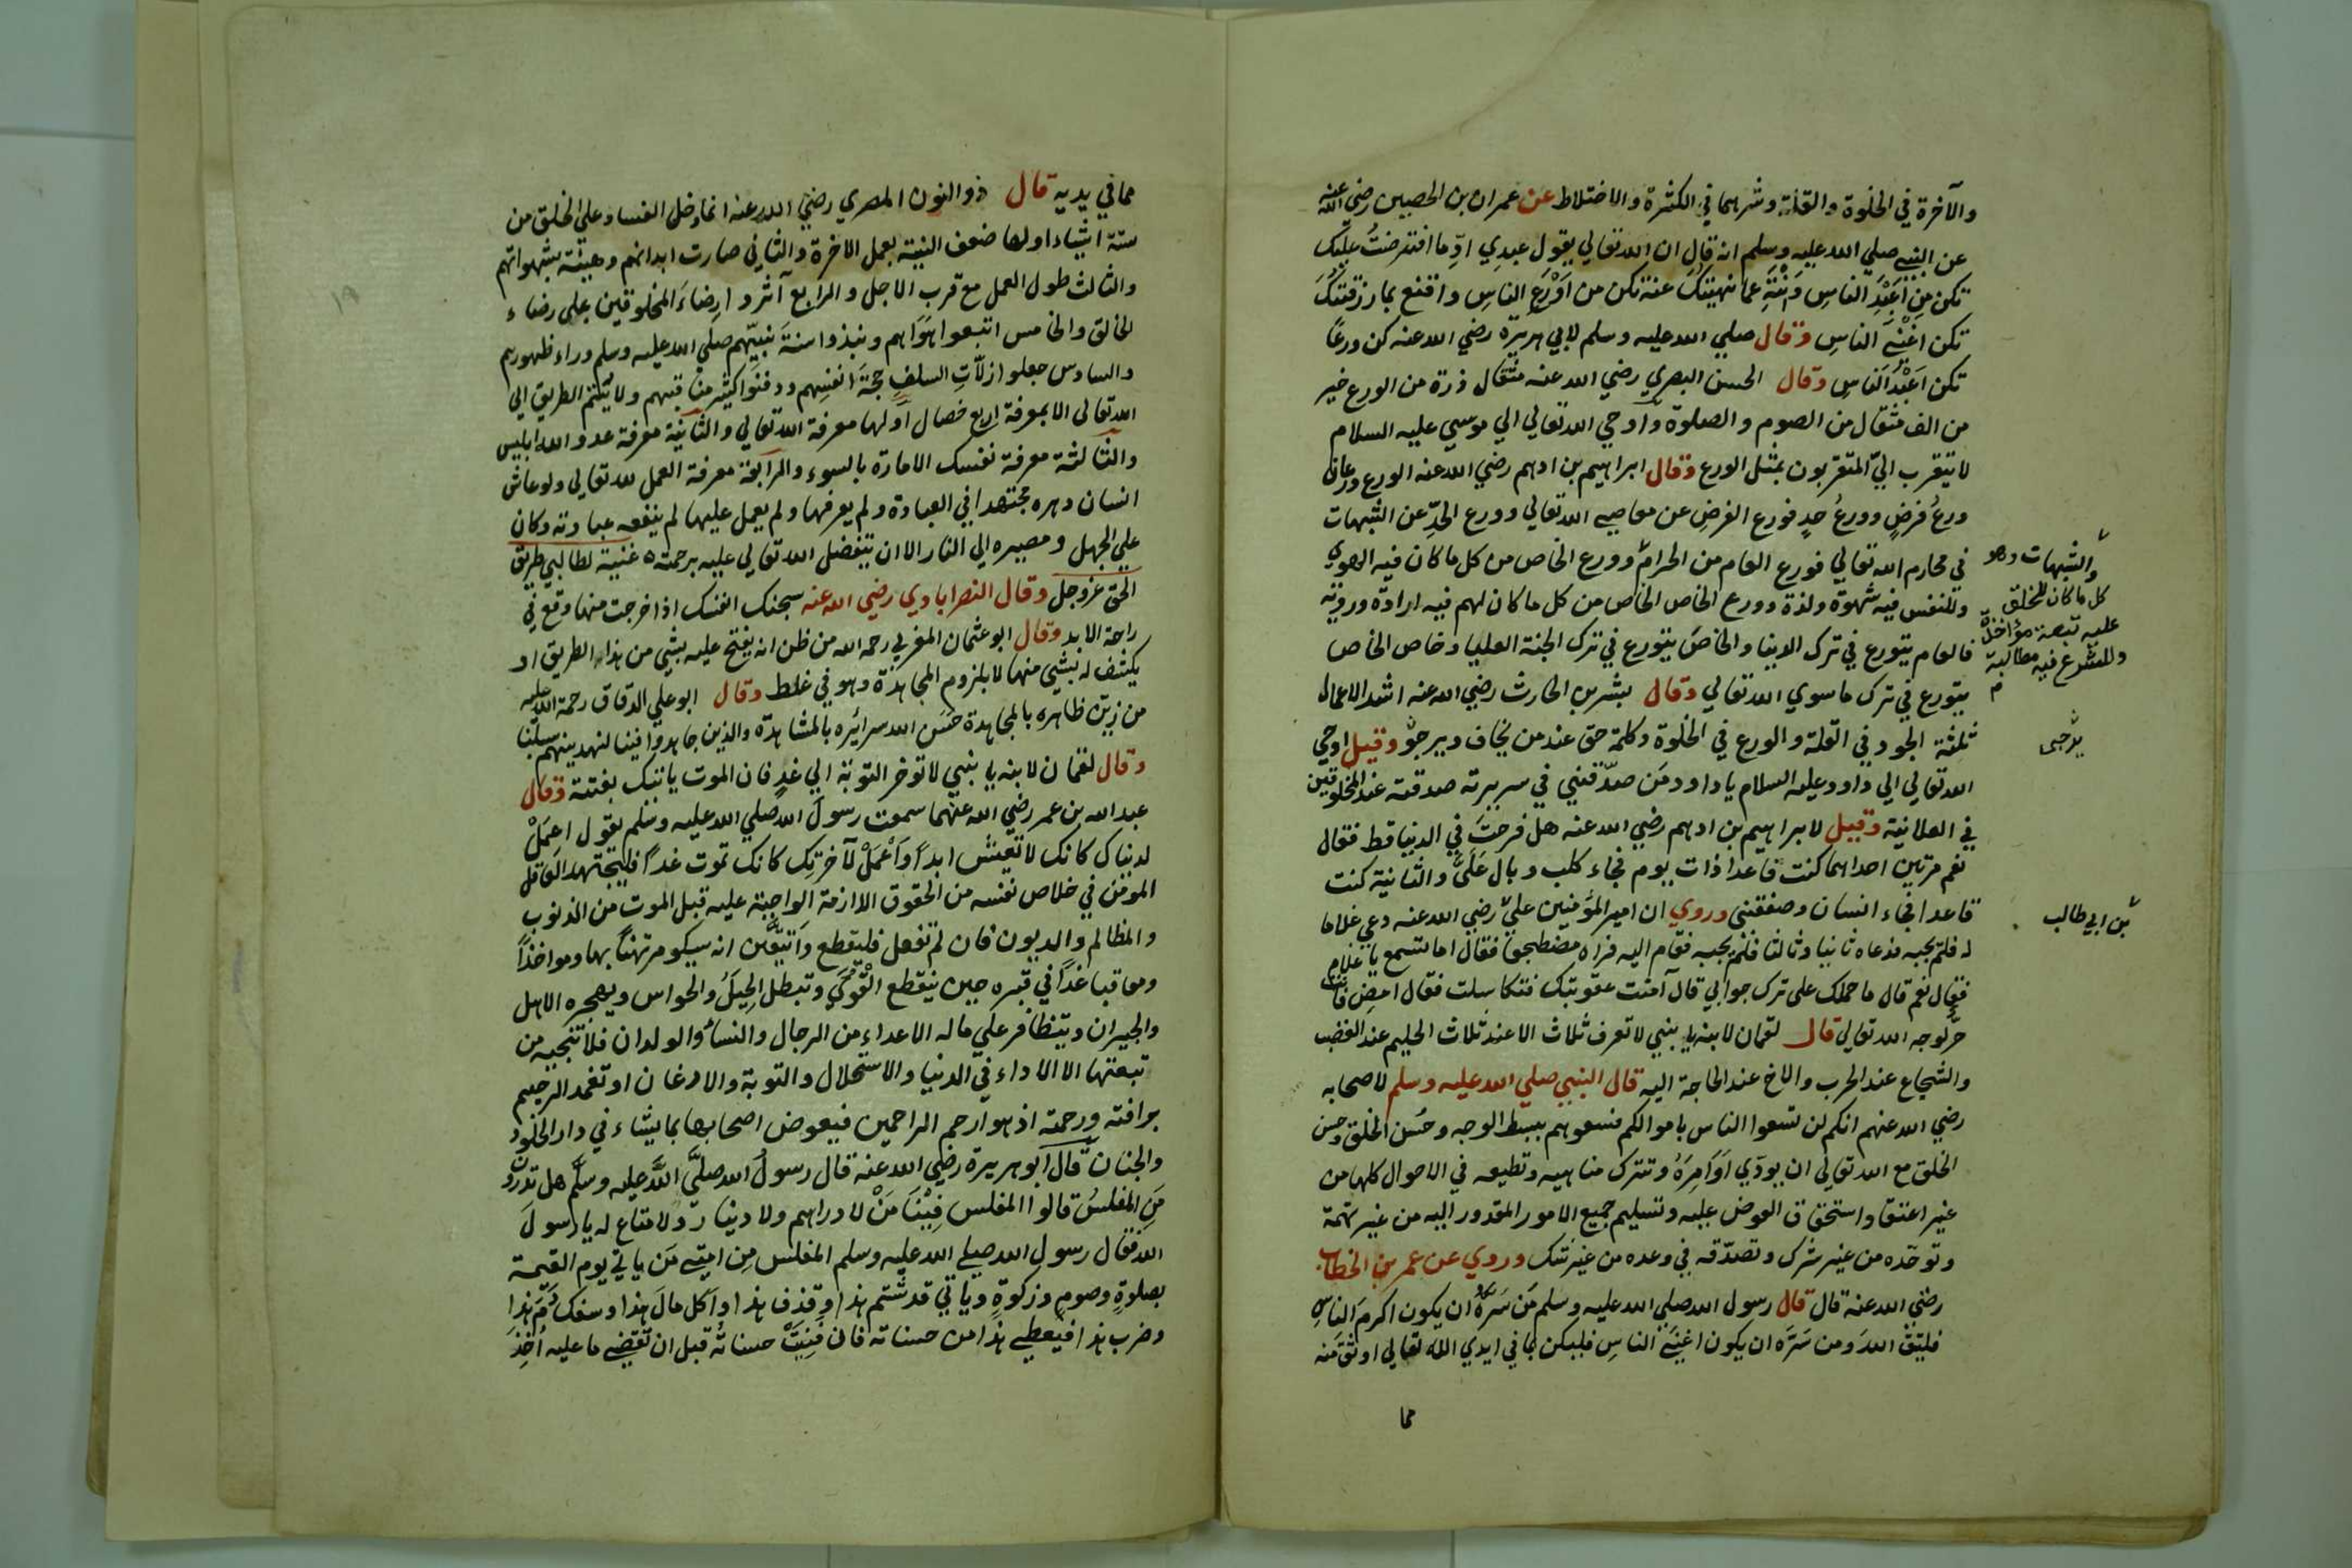 والآخرة في الخلوة والقلة وشرهما في الكثرة والاختلاط عن عمران بن الحصين رضي الله عنه
عن النبي صلي الله عليه وسلم انه قال ان الله تعالي يقول عبدي ادِّ ما افترضتُ عليك
تكن مِن اَعْبَدِ الناسِ وَانْتَهِ عما نهيتك عنه تكن من اَوْرَعِ الناسِ واقنع بما رزقتكَ
تكن اغْنَي الناسِ وقال صلي الله عليه وسلم لابي هريرة رضي الله عنه كن ورعًا
تكن اَعْبُدَ الناسِ وقال الحسن البصري رضي الله عنه مثقال ذرة من الورع خير
من الف مثقال من الصوم والصلوة واوحي الله تعالي الي موسي عليه السلام
لا يتقرب اليّ المتقربون بمثل الورع وقال ابراهيم بن ادهم رضي الله عنه الورع ورعان
ورعُ فرضٍ وورعُ حدٍ فورع الفرضِ عن معاصي الله تعالي وورع الحدِّ عن الشبهات
في محارم الله تعالي فورع العام من الحرام وورع الخاص من كل ما كان فيه الهوي
وللنفس فيه شهوة ولذة وورع الخاص الخاص من كل ما كان لهم فيه ارادة ورويته
فالعام يتورع في ترك الدنيا والخاص يتورع في ترك الجنة العليا وخاص الخاص
يتورع في ترك ما سوي الله تعالي وقال بشر بن الحارث رضي الله عنه اشد الاعمال
ثلثة الجود في القلة والورع في الخلوة وكلمة حق عند من يخاف ويرجو وقيل اوحي
الله تعالي الي داود عليه السلام يا داود مَن صدّقني في سريرته صدقته عند المخلوقين
في العلانية وقيل لابراهيم بن ادهم رضي الله عنه هل فرحتَ في الدنيا قط فقال
نعم مرتين احداهما كنت قاعدا ذات يوم فجاء كلب وبال عَلَيَّ والثانية كنت
قاعدا فجاء انسان وصفقني وروي ان امير المؤمنين عليّ رضي الله عنه دعي غلاما
له فلم يجبه فدعاه ثانيا وثالثا فلم يجبه فقام اليه فراه مضطجعا فقال اما تسمع يا غلام
فقال نعم قال ما حملك علي ترك جوابي قال آمنت عقوبتك فتكاسلت فقال امضِ فانت
حرٌّ لوجه الله تعالي قال لقمان لابنه يا بنيي لا تعرف ثلاث الا عند ثلاث الحليم عند الغضب
والشجاع عند الحرب والاخ عند الحاجة اليه قال النبي صلي الله عليه وسلم لاصحابه
رضي الله عنهم انكم لن تسعوا الناس باموالكم فسعوهم ببسط الوجه وحُسن الخلق وحسن
الخلق مع الله تعالي ان يودّي اَوَامِرَهُ وتترك مناهيه وتطيعه في الاحوال كلها من
غير اعتقاد استحقاق العوض عليه وتسليم جميع الامور المقدور اليه من غير تهمة
وتوحّده من غير شرك وتصدّقه في وعده من غير شك وروي عن عمر بن الخطاب
رضي الله عنه قال قال رسول الله صلي الله عليه وسلم مَن سَرَّهُ ان يكون اكرمَ الناسِ
فليتق اللهَ ومن سَرَّه ان يكون اغنَي الناسِ فليكن بما في ايدي الله تعالي اوثقَ منه
مما
والشبهات وهو
كل ما كان للخلق
عليه تبعة مؤاخذ
وللشرع فيه مطالبة
م
يرجي
بن ابي طالب
مما في يديه قال ذو النون المصري رضي الله عنه انما دخل الفساد علي الخلق من
ستة اشياء اولها ضعف النية بعمل الاخرة والثاني صارت ابدانهم رهينة بشهواتهم
والثالث طول العمل مع قرب الاجل والرابع آثروا رضاءَ المخلوقين علي رضاء
الخالق والخامس اتبعوا هَوَاهم ونبذوا سنةَ نبيّهم صلي الله عليه وسلم وراء ظهورهم
والسادس جعلوا زلّاتِ السلفِ حجةَ انفسِهم ودفنوا كثير مناقبهم ولا يلتئم الطريق الي
الله تعالي الا بمعرفة اربع خصال اولها معرفة الله تعالي والثانية معرفة عدو الله ابليس
والثالثة معرفة نفسك الامارة بالسوء والرابعة معرفة العمل لله تعالي ولو عاش
انسان دهره مجتهدا في العبادة ولم يعرفها ولم يعمل عليها لم ينفعه عبادته وكان
علي الجهل ومصيره الي النار الا ان يتفضل الله تعالي عليه برحمته غنية لطالبي طريق
الحق عز وجل وقال النصرابادي رضي الله عنه سجنك انفسك اذا خرجت منها وقع في
راحة الابد وقال ابو عثمان المغربي رحمه الله من ظن انه يفتح عليه بشي من هذا الطريق او
يكشف له بشي منها لا بلزوم المجاهدة وهو في غلط وقال ابو علي الدقاق رحمة الله عليه
من زيّن ظاهره بالمجاهدة حسَّن الله سرائره بالمشاهدة والذين جاهدوا فينا لنهدينهم سبلنا
وقال لقمان لابنه يا بنيي لا توخر التوبة الي غدٍ فان الموت ياتيك بغتة وقال
عبد الله بن عمر رضي الله عنهما سمعت رسولَ الله صلي الله عليه وسلم يقول اعمَلْ
لدنياك كانك لا تعيش ابدًا وَاْعْمَلْ لآخرتِك كانك تموت غدًا فليجتهد العاقل
الموقن في خلاص نفسه من الحقوق اللازمة الواجبة عليه قبل الموت من الذنوب
والمظالم والديون فان لم تفعل فليقطع وَاتيقّن انه سيكو مرتهنًا بها ومواخذًا
ومعاقبا غدًا في قبره حين ينقطع الْقُوَي وتبطل الحِيَلُ والحواس ويهجره الاهل
والجيران ويتظافر علي ماله الاعداء من الرجال والنساء والولدان فلا تنجيه من
تبعتها الا الاداء في الدنيا والاستحلال والتوبة والاذعان او تغمد الرحيم
برافته ورحمته اذ هو ارحم الراحمين فيعوض اصحابها بما يشاء في دار الخلود
والجنان قال ابو هريرة رضي الله عنه قال رسولُ الله صلَّي اللَّه عليه وسلَّم هل تدرون
مَنِ المفلسُ قالوا المفلس فِيْنَا مَنْ لا دراهم ولا دينار ولا متاع له يا رسول
الله فقال رسول الله صلي الله عليه وسلم المفلس مِن امتي مَن ياتي يوم القيمة
بصلوةٍ وصومٍ وزكوةٍ وياتي قد شتم هذا وقذف هذا واكل مالَ هذا وسفك دَمَ هذا
وضرب هذا فيُعطي هذا من حسناته فان فَنِيَتْ حسناتُه قبل ان تقضي ما عليه اُخِذَ
١٩